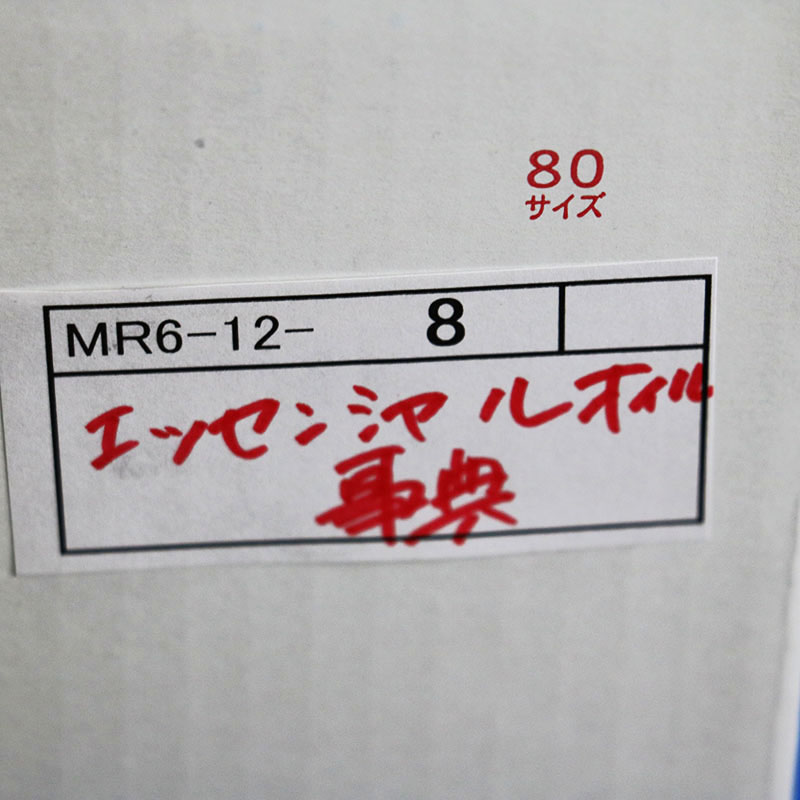 80
サイズ
MR6-12- 8
エッセンシャルオイル
事典